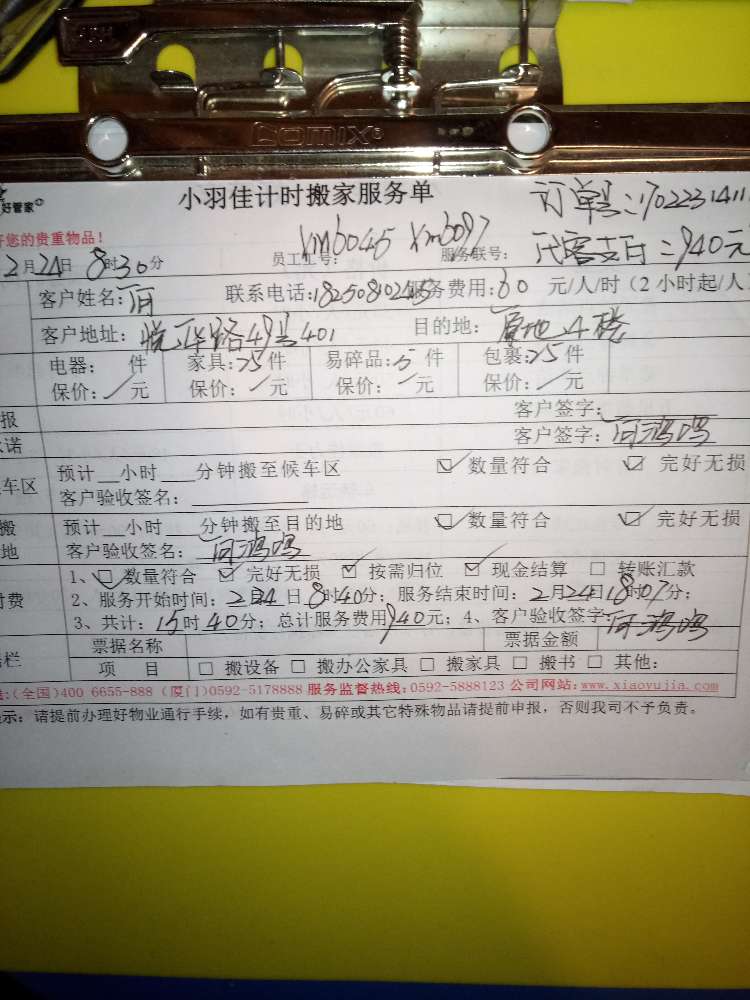 comix
好管家
小羽佳计时搬家服务单
订单号:1702231411
您的贵重物品!
代客支白:940元
2月24日 8时30分 员工汇号: xm6045 xm6097 服务联号:
客户姓名: 联系电话: 服务费用:60 元/人/时(2小时起/人
客户地址: 49号401 目的地: 原地4楼
电器: 件 家具:75件 易碎品:5件 包裹:75件
保价:/元 保价:/元 保价:/元 保价:/元
报 客户签字:
诺 客户签字:
车区 预计__小时___分钟搬至候车区 ☑数量符合 ☑完好无损
客户验收签名:
搬 预计__小时___分钟搬至目的地 ☑数量符合 ☑完好无损
地 客户验收签名:
付费 1、☑数量符合 ☑完好无损 ☑按需归位 ☑现金结算 □转账汇款
2、服务开始时间:2月24日8时40分;服务结束时间:2月24日18时07分;
3、共计:15时40分;总计服务费用940元;4、客户验收签字
栏 票据名称 票据金额
项 目 □搬设备 □搬办公家具 □搬家具 □搬书 □其他:
:(全国)400 6655-888 (厦门)0592-5178888 服务监督热线:0592-5888123 公司网站:www.xiaoyujia.com
示:请提前办理好物业通行手续,如有贵重、易碎或其它特殊物品请提前申报,否则我司不予负责。